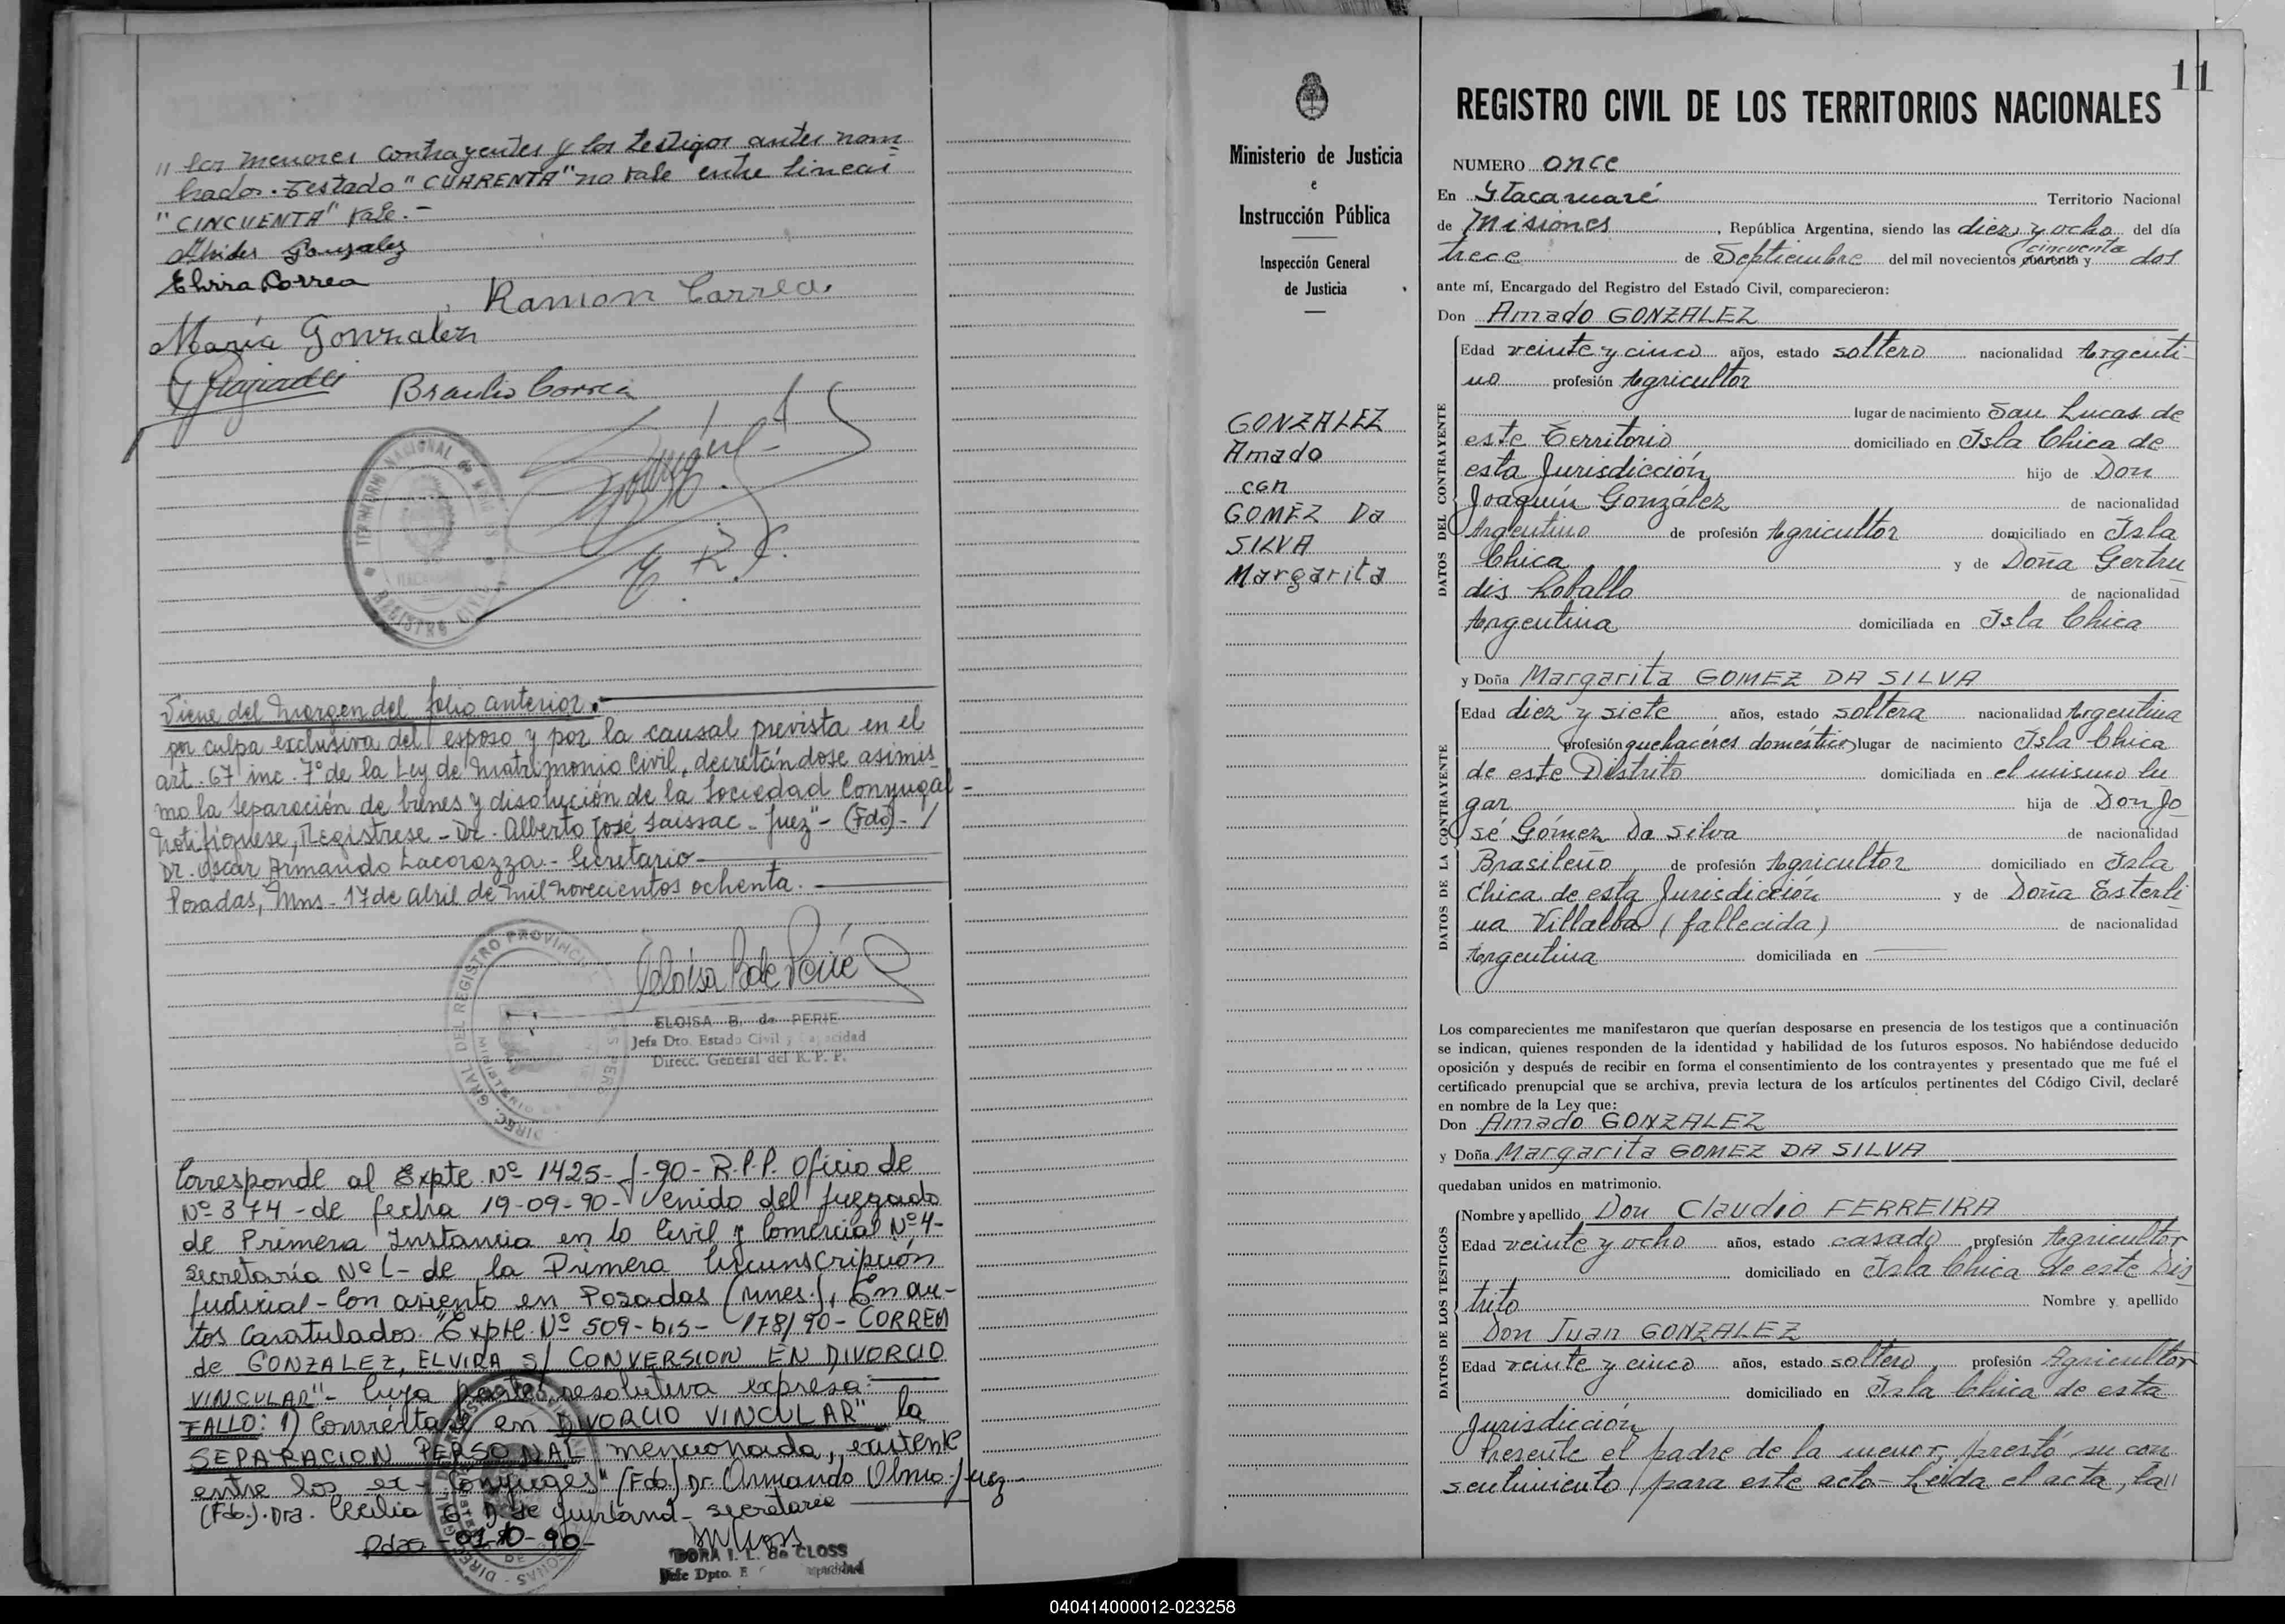 " los menores contrayentes y los testigos antes nom
brados. Testado "CUARENTA" no vale entre lineas
"CINCUENTA" Vale.-
Alcides Gonzalez
Elvira Correa
Ramon Correa
María Gonzalez
Braulio Correa
TERRITORIO NACIONAL DE MISIONES
REGISTRO CIVIL
E. R. C.
Viene del margen del folio anterior.
por culpa exclusiva del esposo y por la causal prevista en el
art. 67 inc. 7º de la Ley de Matrimonio Civil, decretándose asimis
mo la separación de bienes y disolución de la Sociedad Conyugal -
Notifíquese, Regístrese - Dr. Alberto José Saissac - Juez" - (Fdo) - /
Dr. Oscar Armando Lacorazza - Secretario
Posadas, Mns - 17 de abril de mil novecientos ochenta.
Eloísa B. de Perié
ELOISA B. de PERIE
Jefa Dto. Estado Civil y Capacidad
Direcc. General del R. P. P.
Corresponde al Expte Nº 1425-J-90- R.P.P. Oficio de
Nº 374 - de fecha 19-09-90- Venido del Juzgado
de Primera Instancia en lo Civil y Comercial Nº 4-
Secretaría Nº 1- de la Primera Circunscripción
Judicial - Con asiento en Posadas (mnes.), En au-
tos Caratulados "Expte. Nº 509-bis- 178/90- CORREA
de GONZALEZ, ELVIRA s/ CONVERSION EN DIVORCIO
VINCULAR"- Cuya parte resolutiva expresa:
FALLO: 1) Conviértase en DIVORCIO VINCULAR" la
SEPARACION PERSONAL mencionada, existente
entre los ex- Conyuges" (Fdo.) Dr. Armando Olmo - Juez -
(Fdo.). Dra. Cecilia G. D. de Guirland - secretaria
Pdas - 01-10-90-
DORA I. L. de CLOSS
Jefe Dpto. E
11
Ministerio de Justicia
e
Instrucción Pública
Inspección General
de Justicia
GONZALEZ
Amado
con
GOMEZ Da
SILVA
Margarita
REGISTRO CIVIL DE LOS TERRITORIOS NACIONALES
NUMERO once
En Itacaruaré Territorio Nacional
de Misiones, República Argentina, siendo las diez y ocho del día
trece de Septiembre del mil novecientos cuarenta y cincuenta dos
ante mí, Encargado del Registro del Estado Civil, comparecieron:
Don Amado GONZALEZ
DATOS DEL CONTRAYENTE
Edad veinte y cinco años, estado soltero nacionalidad Argenti-
no profesión Agricultor
lugar de nacimiento San Lucas de
este Territorio domiciliado en Isla Chica de
esta Jurisdicción hijo de Don
Joaquín González de nacionalidad
Argentino de profesión Agricultor domiciliado en Isla
Chica y de Doña Gertru
dis Loballo de nacionalidad
Argentina domiciliada en Isla Chica
y Doña Margarita GOMEZ DA SILVA
DATOS DE LA CONTRAYENTE
Edad diez y siete años, estado soltera nacionalidad Argentina
profesión quehacéres domésticos lugar de nacimiento Isla Chica
de este Distrito domiciliada en el mismo lu
gar hija de Don Jo
sé Gómez Da Silva de nacionalidad
Brasileño de profesión Agricultor domiciliado en Isla
Chica de esta Jurisdicción y de Doña Esterli
na Villalba (fallecida) de nacionalidad
Argentina domiciliada en
Los comparecientes me manifestaron que querían desposarse en presencia de los testigos que a continuación
se indican, quienes responden de la identidad y habilidad de los futuros esposos. No habiéndose deducido
oposición y después de recibir en forma el consentimiento de los contrayentes y presentado que me fué el
certificado prenupcial que se archiva, previa lectura de los artículos pertinentes del Código Civil, declaré
en nombre de la Ley que:
Don Amado GONZALEZ
y Doña Margarita GOMEZ DA SILVA
quedaban unidos en matrimonio.
DATOS DE LOS TESTIGOS
Nombre y apellido Don Claudio FERREIRA
Edad veinte y ocho años, estado casado profesión Agricultor
domiciliado en Isla Chica de este Dis
trito Nombre y apellido
Don Juan GONZALEZ
Edad veinte y cinco años, estado soltero, profesión Agricultor
domiciliado en Isla Chica de esta
Jurisdicción
Presente el padre de la menor, prestó su con
sentimiento para este acto - Leida el acta, la"
040414000012-023258